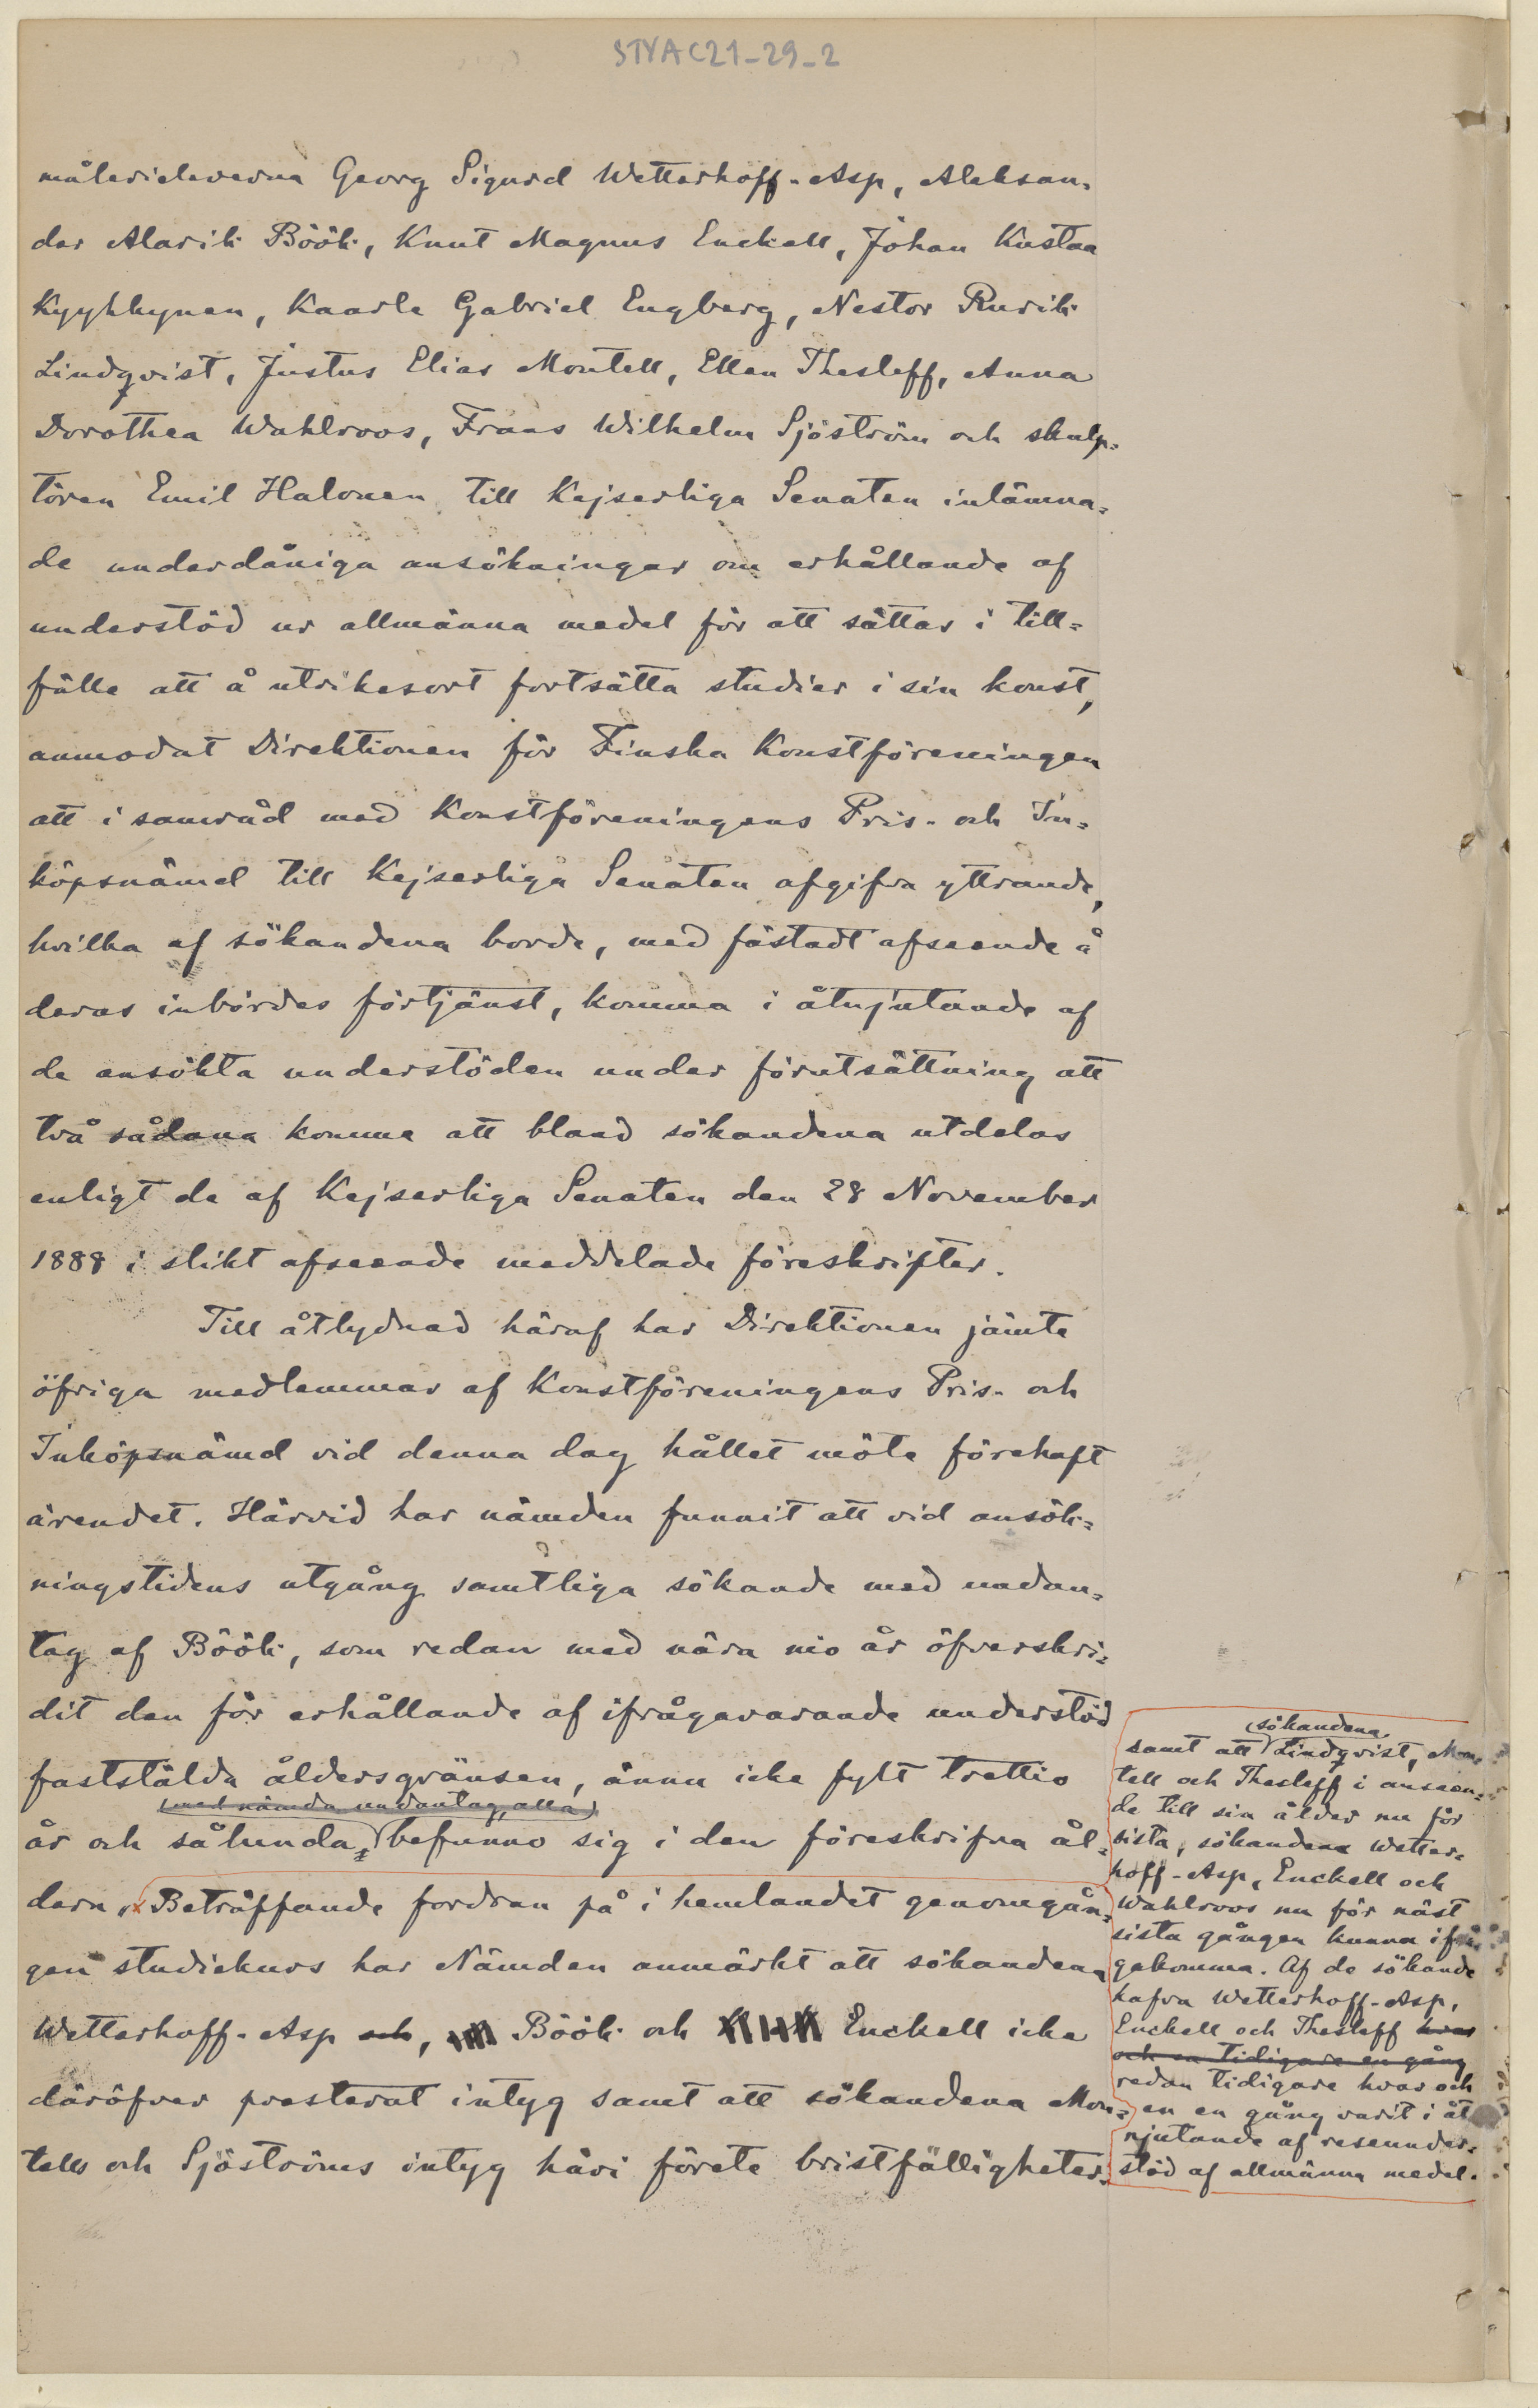 STYA C21-29-2
målerieleverna Georg Sigurd Wetterhoff-Asp, Aleksan=
der Alarik Böök, Knut Magnus Enckell, Johan Kustaa
Kyyhkynen, Kaarle Gabriel Engberg, Nestor Rurik
Lindqvist, Justus Elias Montell, Ellen Thesleff, Anna
Dorothea Wahlroos, Frans Wilhelm Sjöström och skulp=
tören Emil Halonen till Kejserliga Senaten inlämna=
de underdåniga ansökningar om erhållande af
understöd ur allmänna medel för att sättas i till=
fälle att å utrikesort fortsätta studier i sin konst,
anmodat Direktionen för Finska Konstföreningen
att i samråd med Konstföreningens Pris- och In=
köpsnämd till Kejserliga Senaten afgifva yttrande,
hvilka af sökandena borde, med fästadt afseende å
deras inbördes förtjänst, komma i åtnjutande af
de ansökta understöden under förutsättning att
två sådana komme att bland sökandena utdelas
enligt de af Kejserliga Senaten den 28 November
1888 i slikt afseende meddelade föreskrifter.
Till åtlydnad häraf har Direktionen jämte
öfriga medlemmar af Konstföreningens Pris- och
Inköpsnämd vid denna dag hållet möte förehaft
ärendet. Härvid har nämden funnit att vid ansök=
ningstidens utgång samtliga sökande med undan=
tag af Böök, som redan med nära nio år öfverskri=
dit den för erhållande af ifrågavarande understöd
faststälda åldersgränsen, ännu icke fylt trettio
(med nämda undantag, alla)
år och sålunda, befunno sig i den föreskrifna ål=
dern, Beträffande fordran på i hemlandet genomgån=
gen studiekurs har Nämden anmärkt att sökandena
Wetterhoff-Asp och, Böök och Enckell icke
däröfver presterat intyg samt att sökandena Mon=
tells och Sjöströms intyg häri förete bristfälligheter.
sökandena
samt att Lindqvist, Mon=
tell och Thesleff i anseen=
de till sin ålder nu för
sista, sökandena Wetter=
hoff-Asp, Enckell och
Wahlroos nu för näst
sista gången kunna ifrå
gakomma. Af de sökande
hafva Wetterhoff-Asp,
Enckell och Thesleff hvar
och en tidigare en gång
redan tidigare hvar och
en en gång varit i åt
njutande af reseunder=
stöd af allmänna medel.